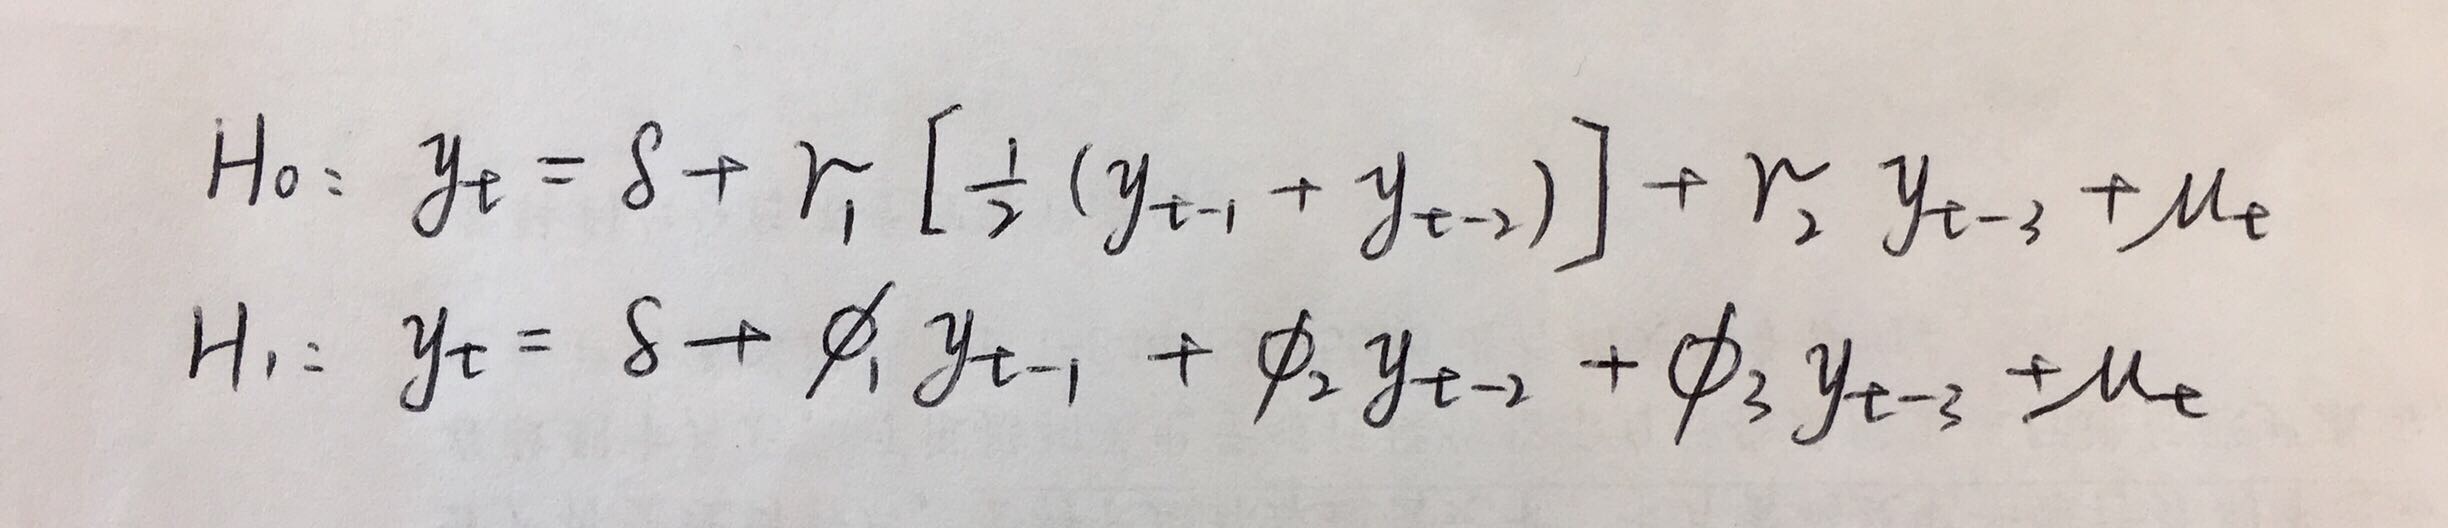 H₀: yₜ = δ + γ₁ [½ (yₜ₋₁ + yₜ₋₂)] + γ₂ yₜ₋₃ + μₜ
H₁: yₜ = δ + ϕ₁ yₜ₋₁ + ϕ₂ yₜ₋₂ + ϕ₃ yₜ₋₃ + μₜ